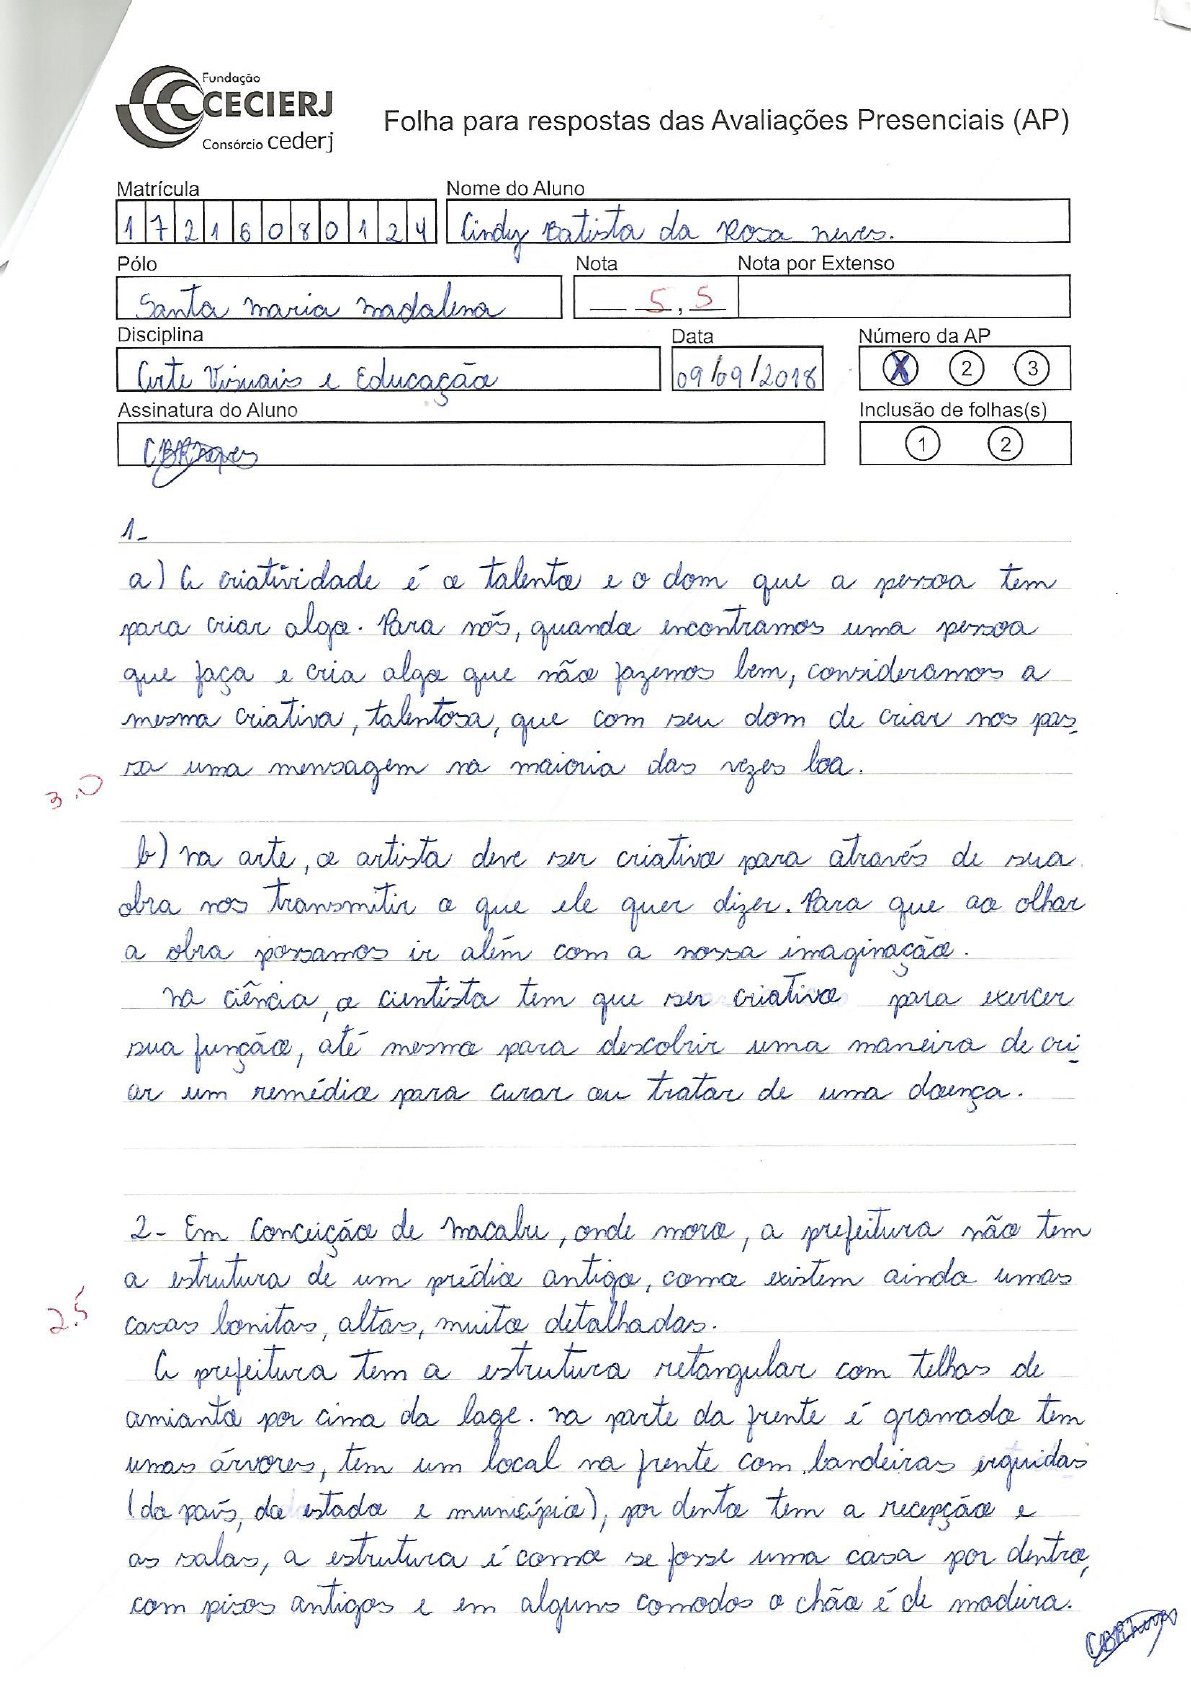 Fundação
CECIERJ
Consórcio cederj
Folha para respostas das Avaliações Presenciais (AP)
Matrícula
Nome do Aluno
17216080124
Cindy Batista da Rosa Neves.
Pólo
Nota
Nota por Extenso
Santa Maria Madalena
5,5
Disciplina
Data
Número da AP
Arte Visuais e Educação
09/09/2018
X 2 3
Assinatura do Aluno
Inclusão de folhas(s)
1 2
1-
a) A criatividade é o talento e o dom que a pessoa tem
para criar algo. Para nós, quando encontramos uma pessoa
que faça e cria algo que não fazemos bem, consideramos a
mesma criativa, talentosa, que com seu dom de criar nos pas-
sa uma mensagem na maioria das vezes boa.
3.0
b) Na arte, o artista deve ser criativo para através de sua
obra nos transmitir o que ele quer dizer. Para que ao olhar
a obra possamos ir além com a nossa imaginação.
Na ciência, o cientista tem que ser criativo para exercer
sua função, até mesmo para descobrir uma maneira de cri-
ar um remédio para curar ou tratar de uma doença.
2- Em Conceição de Macabu, onde moro, a prefeitura não tem
a estrutura de um prédio antigo, como existem ainda umas
casas bonitas, altas, muito detalhadas.
2.5
A prefeitura tem a estrutura retangular com telhas de
amianto por cima da lage. Na parte da frente é gramado tem
umas árvores, tem um local na frente com bandeiras erguidas
(do país, do estado e município), por dento tem a recepção e
as salas, a estrutura é como se fosse uma casa por dentro,
com pisos antigos e em alguns comodos o chão é de madeira.